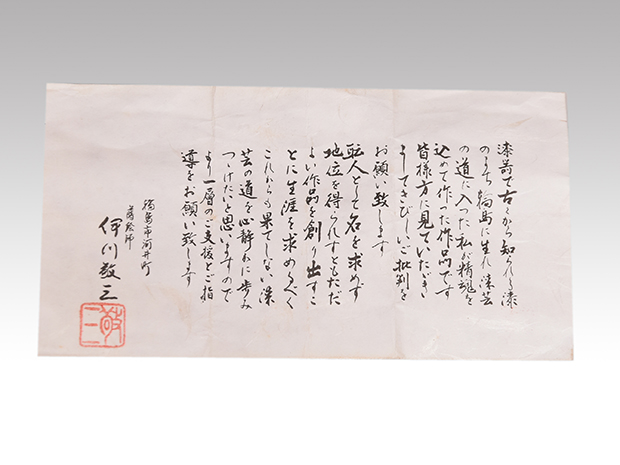 漆芸で古くから知られる漆
のまち輪島に生れ漆芸
の道に入った私が精魂を
込めて作った作品です
皆様方に見ていたゞき
そしてきびしいご批判を
お願い致します
職人として名を求めず
地位を得られずともただ
よい作品を創り出すこ
とに生涯を求めるべく
これからの果てしない漆
芸の道を心静かに歩み
つゞけたいと思いますので
より一層のご支援とご指
導をお願い致します
輪島市河井町
蒔絵師
伊川敬三
敬三